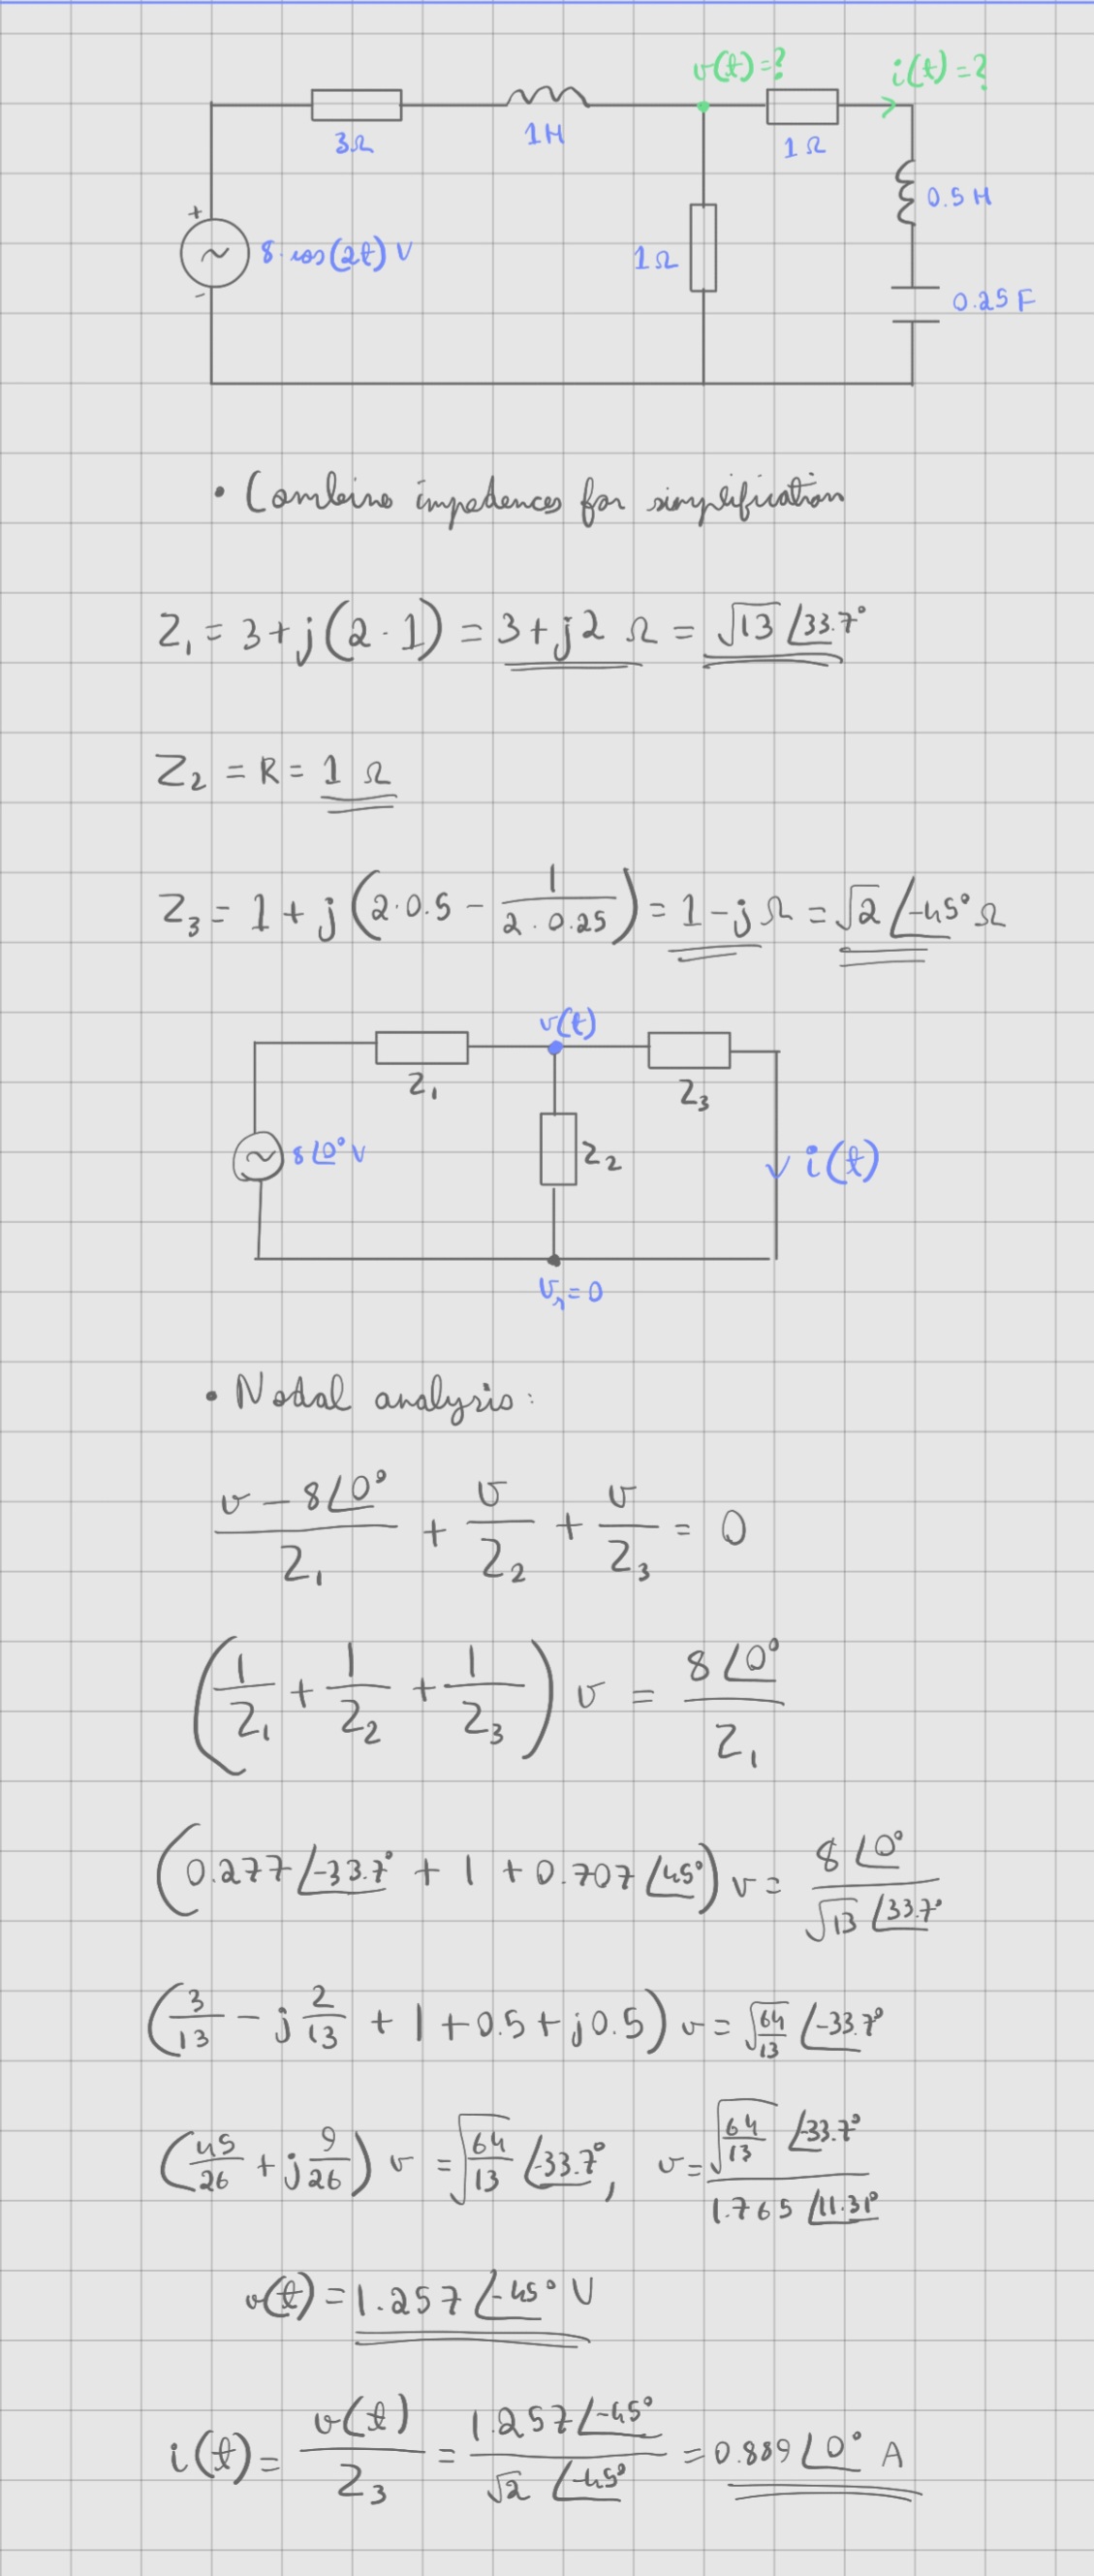 v(t)=? i(t)=?
3Ω 1H 1Ω
0.5 H
+
8·cos(2t) V 1Ω
-
0.25 F
• Combine impedences for simplification
Z₁ = 3 + j(2·1) = 3 + j2 Ω = √13 ∠33.7°
Z₂ = R = 1 Ω
Z₃ = 1 + j(2·0.5 - 1/(2·0.25)) = 1 - j Ω = √2 ∠-45° Ω
v(t)
Z₁ Z₃
8∠0° V Z₂ i(t)
vᵣ = 0
• Nodal analysis:
(v - 8∠0°)/Z₁ + v/Z₂ + v/Z₃ = 0
(1/Z₁ + 1/Z₂ + 1/Z₃) v = 8∠0°/Z₁
(0.277∠-33.7° + 1 + 0.707∠45°) v = 8∠0°/(√13 ∠33.7°)
(3/13 - j 2/13 + 1 + 0.5 + j0.5) v = √(64/13) ∠-33.7°
(45/26 + j 9/26) v = √(64/13) ∠-33.7°, v = (√(64/13) ∠-33.7°)/(1.765 ∠11.31°)
v(t) = 1.257 ∠-45° V
i(t) = v(t)/Z₃ = (1.257∠-45°)/(√2 ∠-45°) = 0.889 ∠0° A